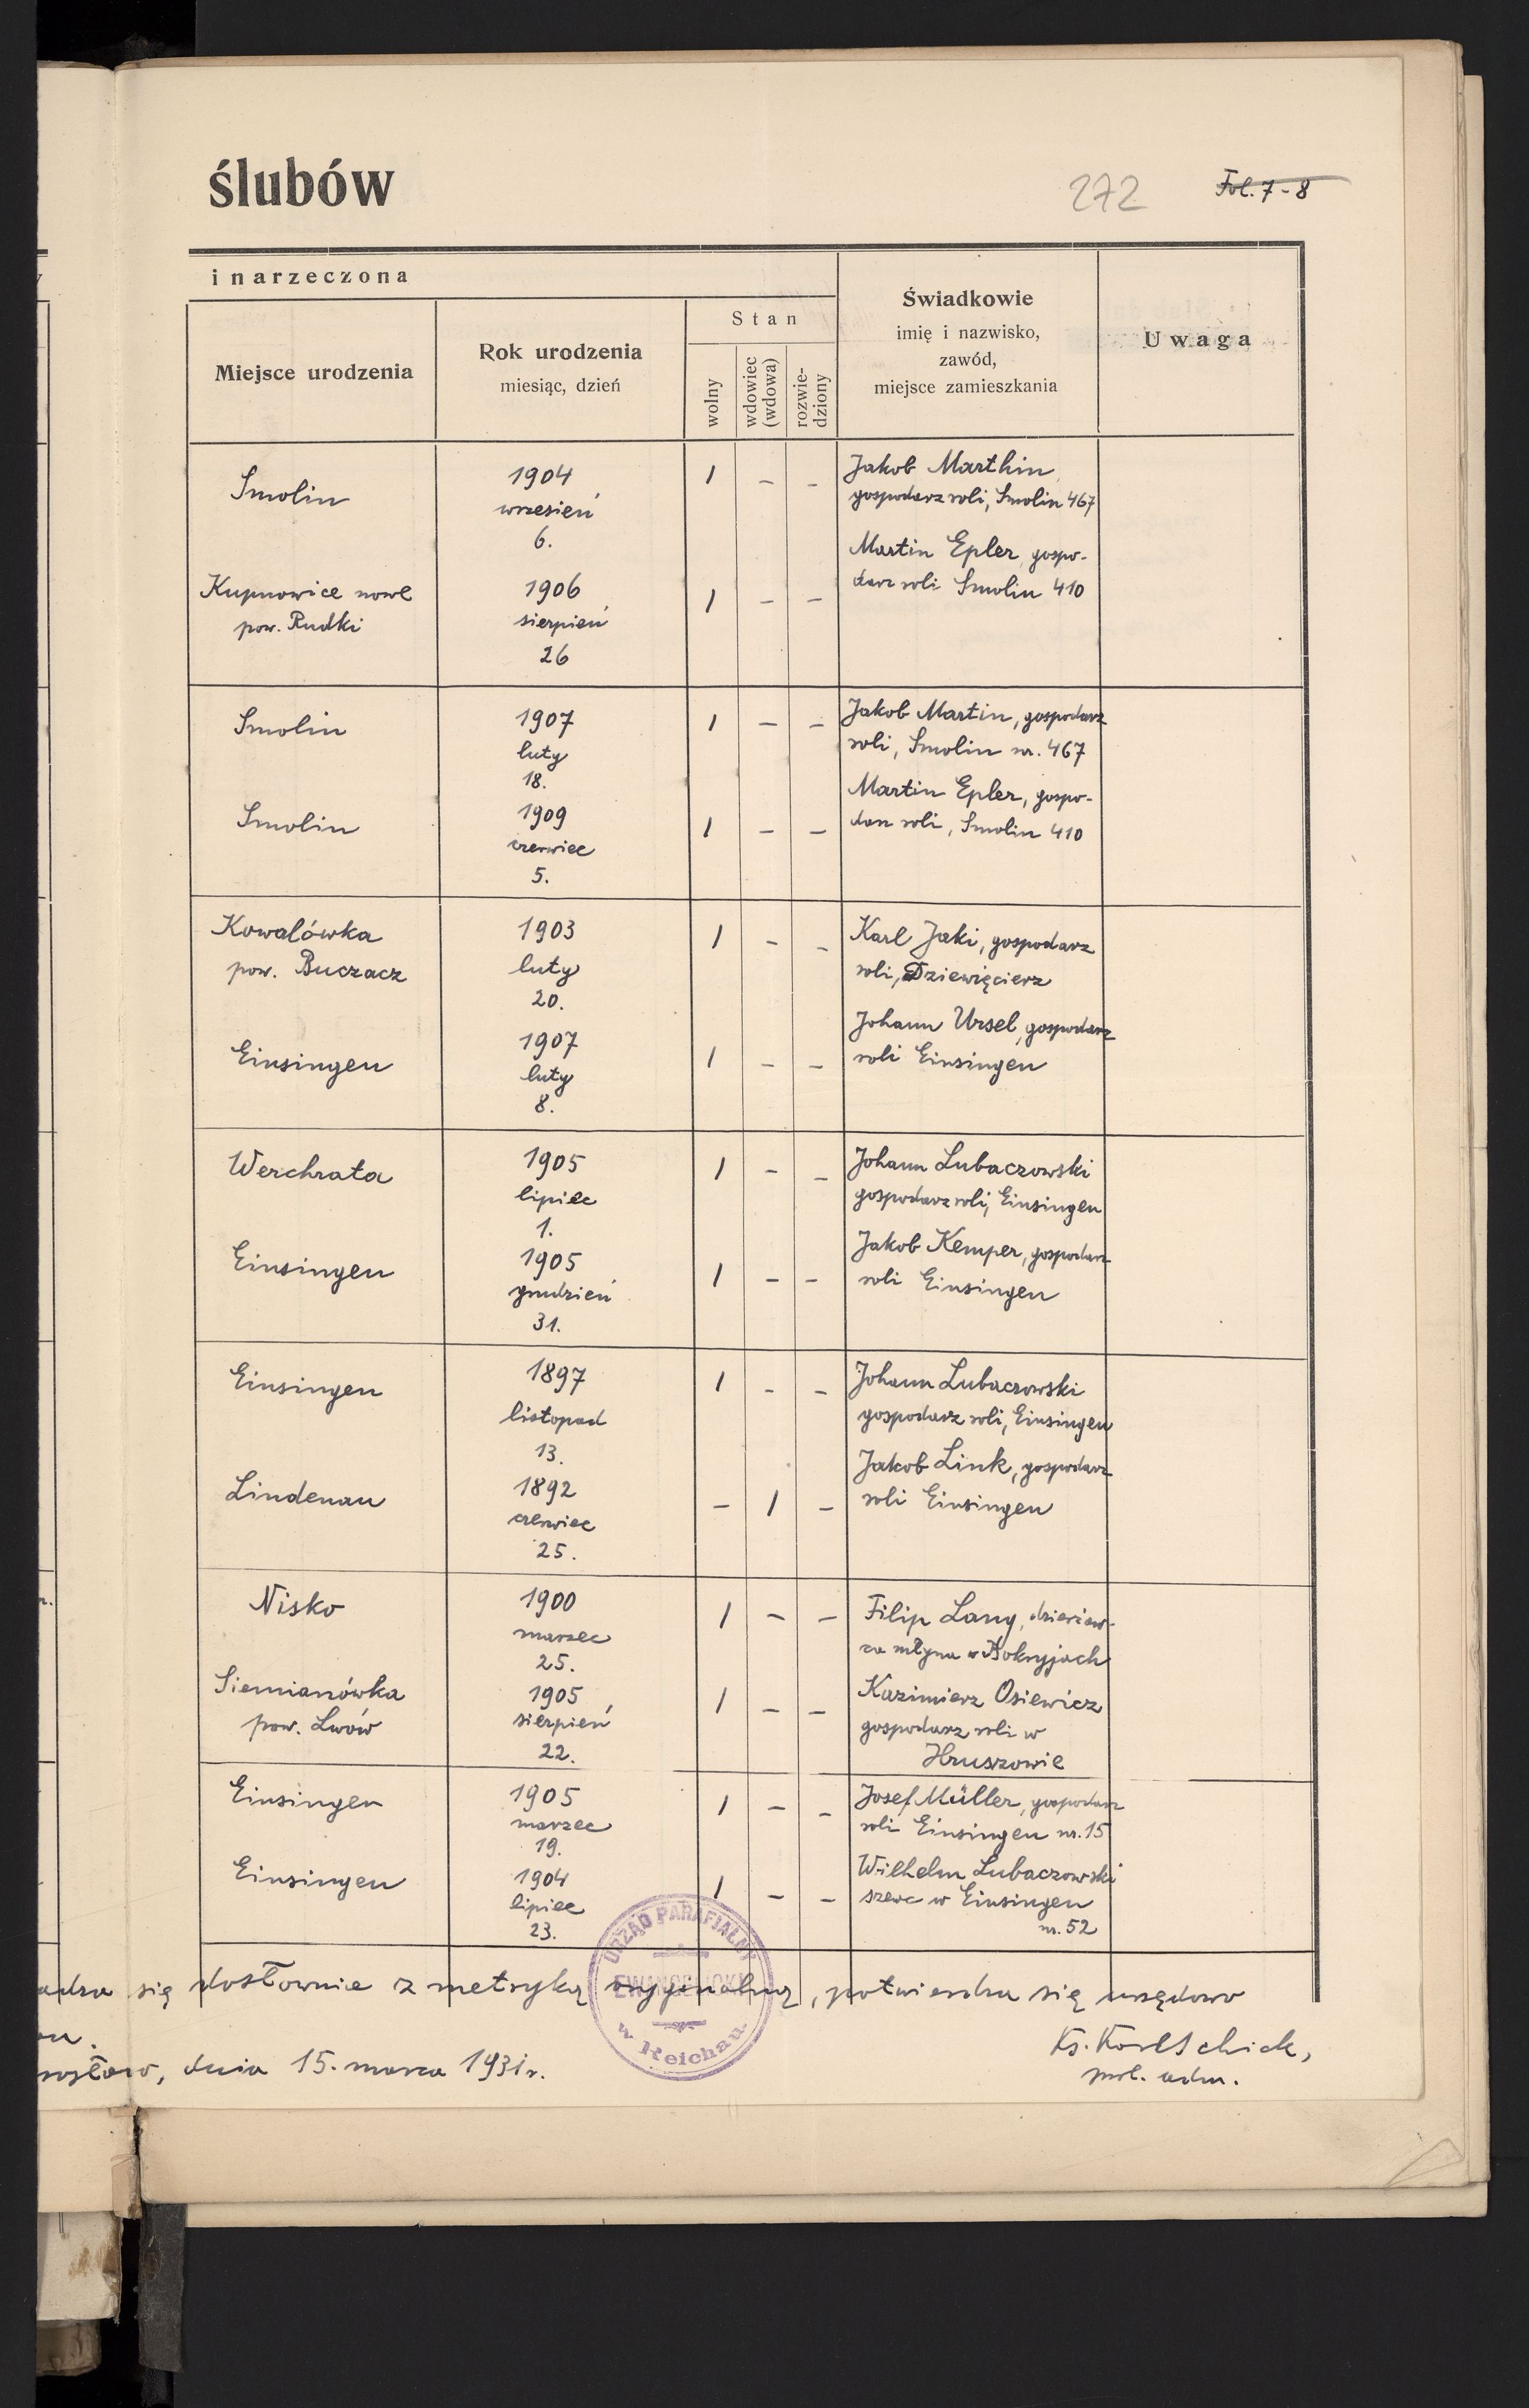 ślubów
272
Fol. 7-8
i narzeczona
Miejsce urodzenia
Rok urodzenia
miesiąc, dzień
Stan
wolny
wdowiec
(wdowa)
rozwie-
dziony
Świadkowie
imię i nazwisko,
zawód,
miejsce zamieszkania
Uwaga
Smolin
1904
wrzesień
6.
1 - -
Jakob Marthin,
gospodarz roli, Smolin 467
Martin Epler, gospo-
darz roli Smolin 410
Kupnowice nowe
pow. Rudki
1906
sierpień
26
1 - -
Smolin
1907
luty
18.
1 - -
Jakob Martin, gospodarz
roli, Smolin nr. 467
Martin Epler, gospo-
darz roli, Smolin 410
Smolin
1909
czerwiec
5.
1 - -
Kowalówka
pow. Buczacz
1903
luty
20.
1 - -
Karl Jaki, gospodarz
roli, Dziewięcierz
Johann Ursel, gospodarz
roli Einsingen
Einsingen
1907
luty
8.
1 - -
Werchrata
1905
lipiec
1.
1 - -
Johann Lubaczowski
gospodarz roli, Einsingen
Jakob Kemper, gospodarz
roli Einsingen
Einsingen
1905
grudzień
31.
1 - -
Einsingen
1897
listopad
13.
1 - -
Johann Lubaczowski
gospodarz roli, Einsingen
Jakob Link, gospodarz
roli Einsingen
Lindenau
1892
czerwiec
25.
- 1 -
Nisko
1900
marzec
25.
1 - -
Filip Lang, dzierżaw-
ca młyna w
Kazimierz Osiewicz
gospodarz roli w
Hruszowie
Siemianówka
pow. Lwów
1905
sierpień
22.
1 - -
Einsingen
1905
marzec
19.
1 - -
Josef Müller, gospodarz
roli Einsingen nr. 15
Wilhelm Lubaczowski
szewc w Einsingen
nr. 52
Einsingen
1904
lipiec
23.
1 - -
URZĄD PARAFJALNY
EWANGELICKI
w Reichau
adza się dosłownie z metryką oryginalną, potwierdza się urzędowo
dnia 15. marca 1931 r.
Ks.
adm.